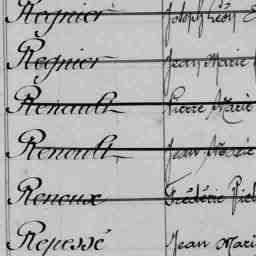 Regnier Joseph Léon
Regnier Jean Marie
Renault Pierre Marie
Renoult Jean Marie
Reneux Frédéric
Repessé Jean Mari